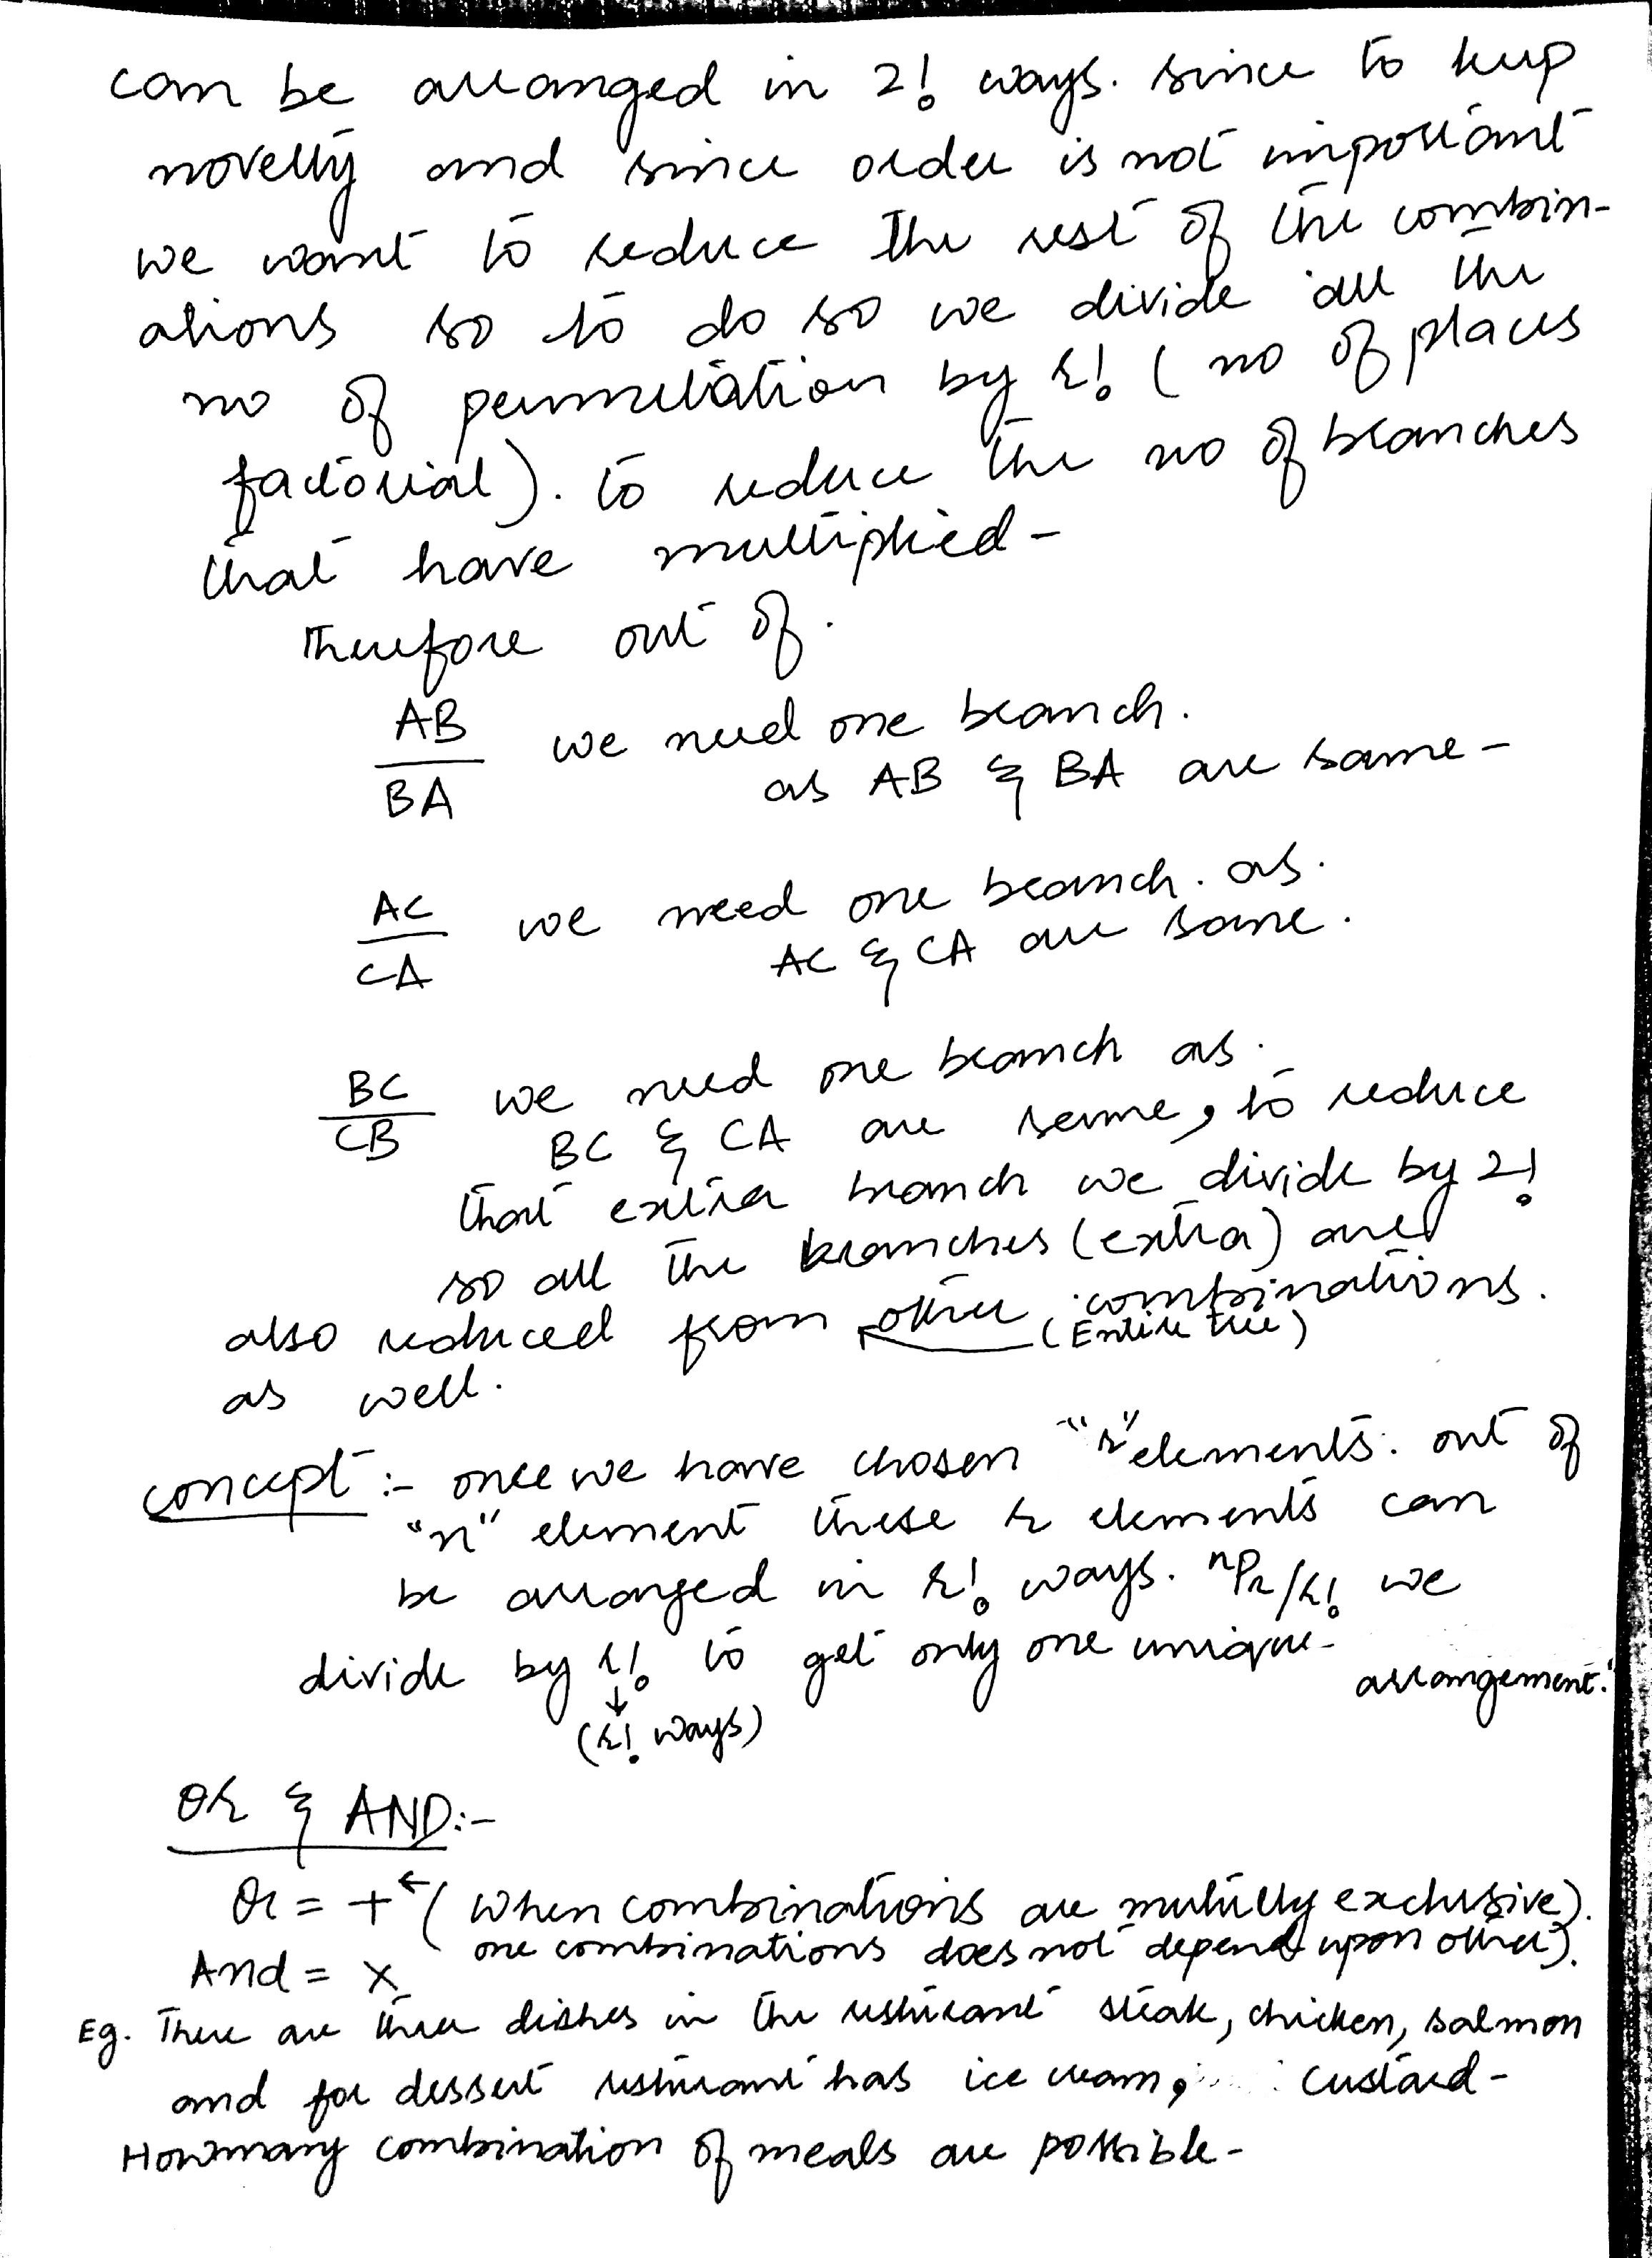 can be arranged in 2! ways. since to keep
novelty and since order is not important
we want to reduce the rest of the combin-
ations so to do so we divide all the
no of permutation by r! ( no of places
factorial). to reduce the no of branches
that have multiplied -
Therefore out of.
AB
BA
we need one branch.
as AB & BA are same -
AC
CA
we need one branch. as.
AC & CA are same.
BC
CB
we need one branch as.
BC & CA are same, to reduce
that extra branch we divide by 2!
so all the branches (extra) are
also reduced from other combinations.
(Entire tree)
as well.
concept :- once we have chosen "r" elements. out of
"n" element these r elements can
be arranged in r! ways. nPr/r! we
divide by r! to get only one unique- arrangement."
(r! ways)
OR & AND:-
Or = + ( when combinations are mutully exclusive).
And = x one combinations does not depend upon other).
Eg. There are three dishes in the restuirant steak, chicken, salmon
and for dessert restuirant has ice cream, custard -
How many combination of meals are possible -